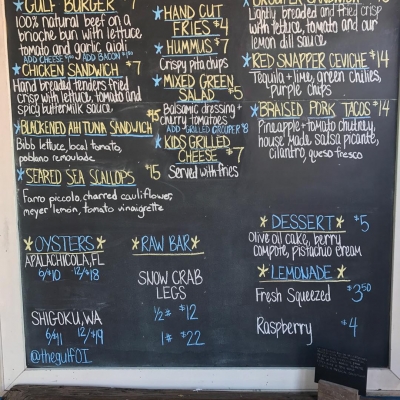 GULF BURGER $7
100% natural beef on a
brioche bun with lettuce,
tomato and garlic aioli
ADD CHEESE ADD BACON
CHICKEN SANDWICH $7
Hand breaded tenders fried
crisp with lettuce, tomato and
spicy buttermilk sauce
BLACKENED AHI TUNA SANDWICH $15
Bibb lettuce, local tomato,
poblano remoulade
SEARED SEA SCALLOPS $15
Farro piccolo, charred cauliflower,
meyer lemon, tomato vinaigrette
HAND CUT
FRIES $4
HUMMUS $7
Crispy pita chips
MIXED GREEN
SALAD $5
Balsamic dressing +
cherry tomatoes
ADD GRILLED GROUPER $8
KIDS GRILLED
CHEESE $7
Served with fries
GROUPER SANDWICH
Lightly breaded and fried crisp
with lettuce, tomato and our
lemon dill sauce
RED SNAPPER CEVICHE
Tequila + lime, green chilies,
purple chips
BRAISED PORK TACOS $14
Pineapple + tomato chutney,
house made salsa picante,
cilantro, queso fresco
OYSTERS
APALACHICOLA, FL
6/$10 12/$18
SHIGOKU, WA
6/$11 12/$19
@thegulfOI
RAW BAR
SNOW CRAB
LEGS
½# $12
1# $22
DESSERT $5
Olive oil cake, berry
compote, pistachio cream
LEMONADE
Fresh Squeezed $3.50
Raspberry $4